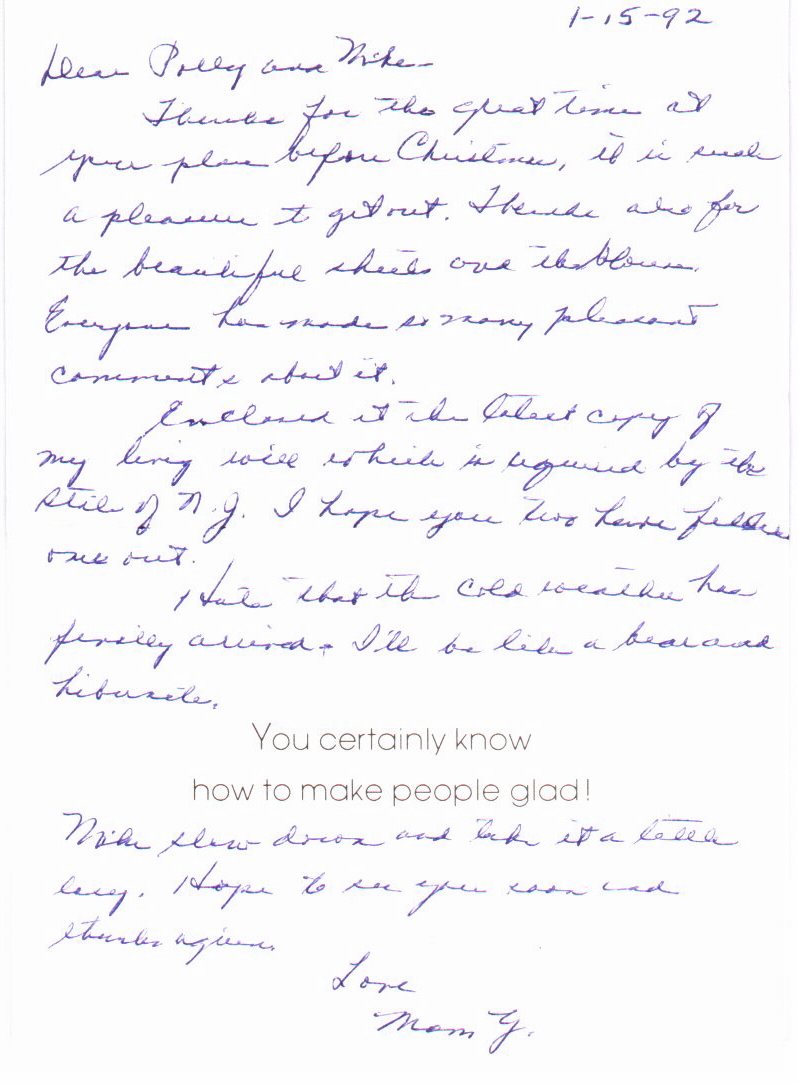 1-15-92
Dear Polly and Mike—
Thanks for the great time at
your place before Christmas, it is such
a pleasure to get out. Thanks also for
the beautiful sheets and the blouse.
Everyone has made so many pleasant
comments about it.
Enclosed is the latest copy of
my living will which is required by the
State of N.J. I hope you two have filled
one out.
Hate that the cold weather has
finally arrived. I'll be like a bear and
hibernate.
You certainly know
how to make people glad!
Mike slow down and take it a little
easy. Hope to see you soon and
thanks again.
Love
Mom Y.